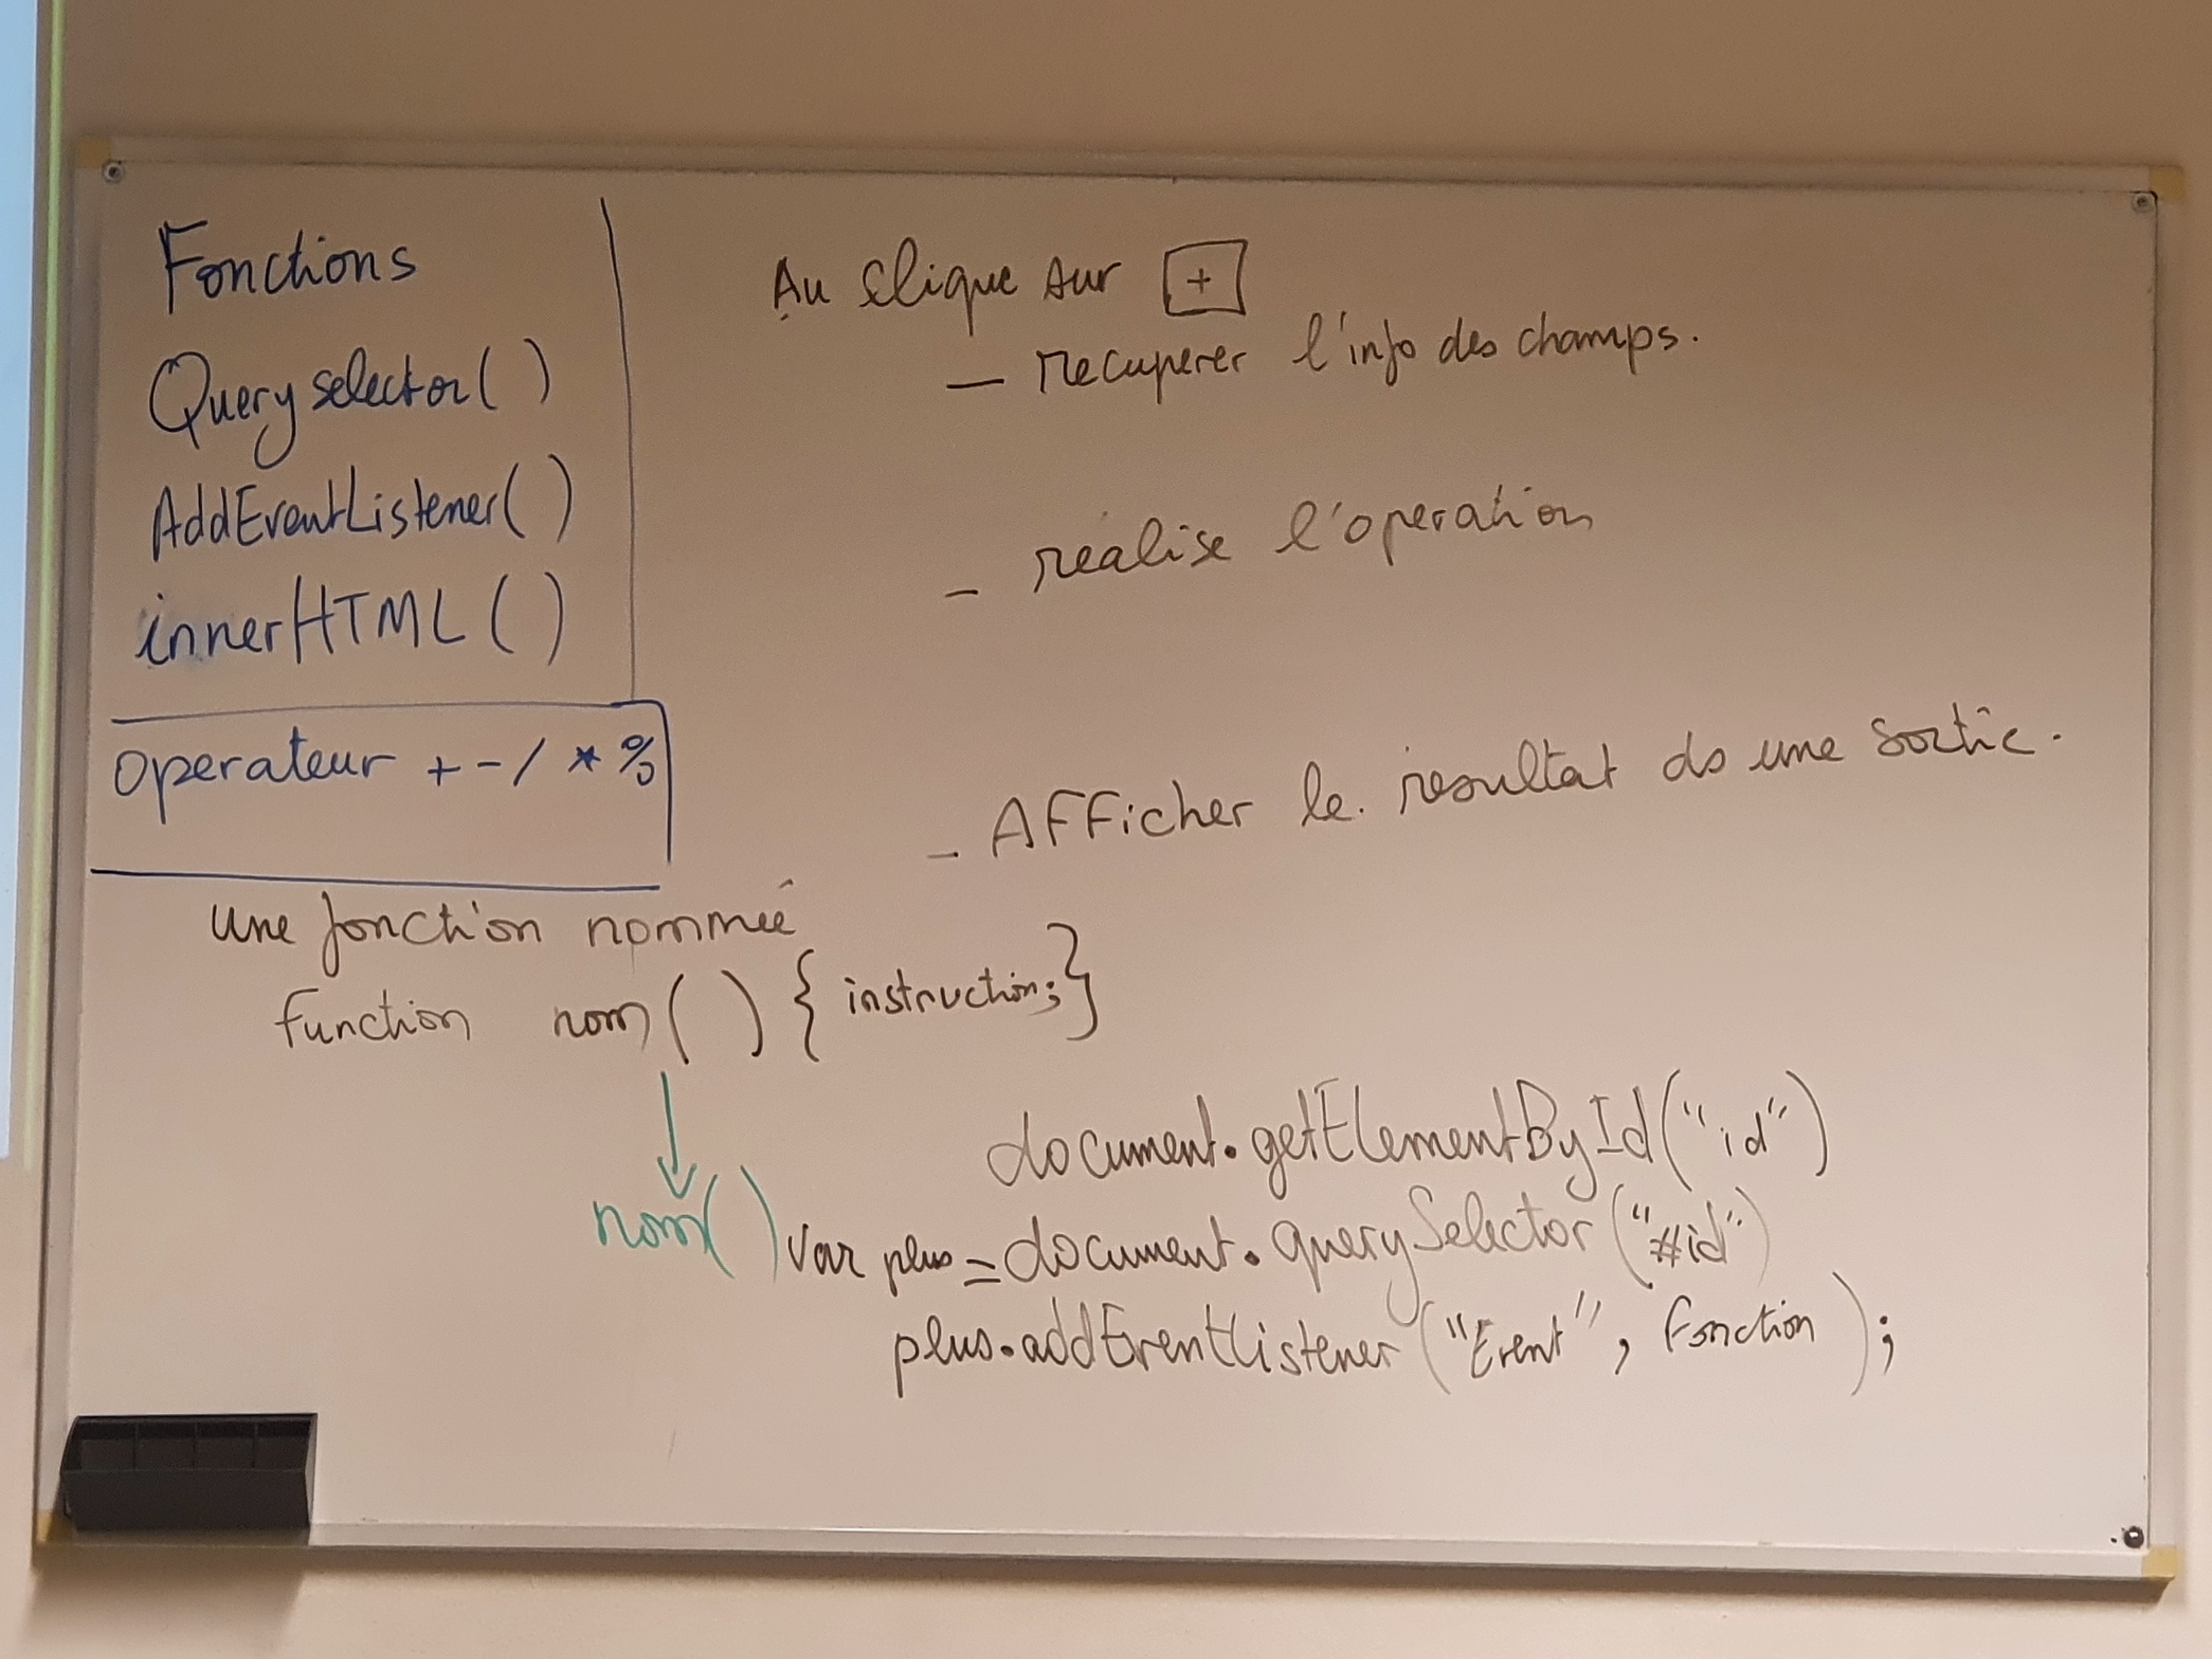 Fonctions
Query selector( )
AddEventListener( )
innerHTML ( )
operateur + - / * %
Au clique sur +
— recuperer l'info des champs.
- réalise l'operation
- AFFicher le. resultat ds une sortie.
une fonction nommeé
function nom( ) { instruction; }
nom( )
document.getElementById("id")
var plus = document.querySelector("#id")
plus.addEventListener("Event", fonction );